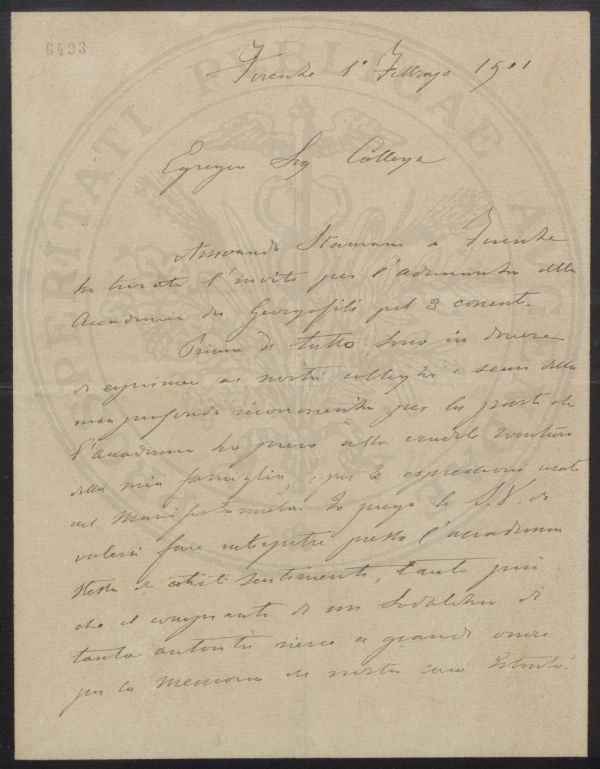 6493
Firenze 1° Febbrajo 1901
Egregio Sig Collega
Arrivando stamane a Firenze
ho trovato l'invito per l'adunanza della
Accademia dei Georgofili pel 3 corrente.
Prima di tutto sono in dovere
di esprimere ai nostri colleghi i sensi della
mia profonda riconoscenza per la parte che
l'Accademia ha preso alla crudele sventura
della mia famiglia, e per le espressioni usate
nel Manifestarmela. Io prego la S.V. di
volersi fare interpetre presso l'accademia
stessa di cotesti sentimenti, tanto più
che il compianto di un Sodalizio di
tanta autorità riesce a grande onore
per la memoria del nostro caro Estinto.
PROSPERITATI PUBLICAE AUGENDAE